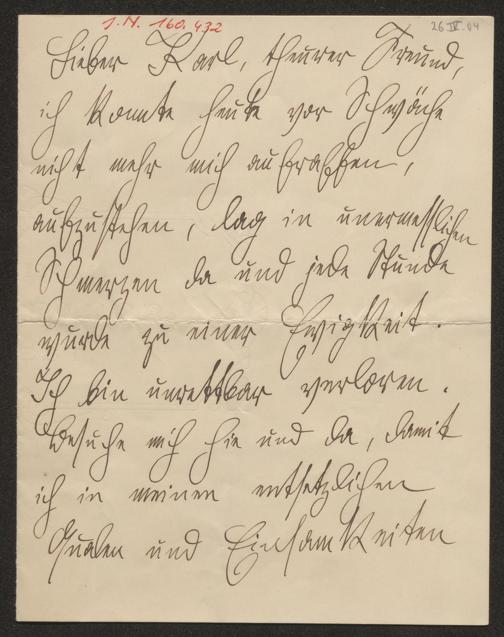 J.N. 160.432
26 IV. 04
Lieber Karl, theurer Freund,
ich konnte heute vor Schwäche
nicht mehr mich aufraffen,
aufzustehen, lag in unermesslichen
Schmerzen da und jede Stunde
wurde zu einer Ewigkeit.
Ich bin unrettbar verloren.
Besuche mich hie und da, damit
ich in meinen entsetzlichen
Qualen und Einsamkeiten